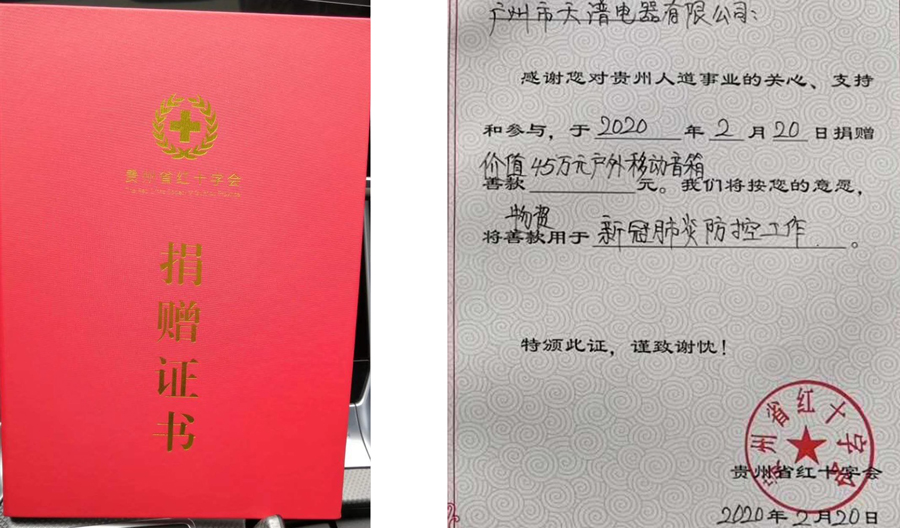 贵州省红十字会
捐赠证书
广州市天谱电器有限公司：
感谢您对贵州人道事业的关心、支持
和参与，于 2020 年 2 月 20 日捐赠
价值45万元户外移动音箱
善款 元。我们将按您的意愿，
物资
将善款用于 新冠肺炎防控工作 。
特颁此证，谨致谢忱！
贵州省红十字会
贵州省红十字会
2020年2月20日